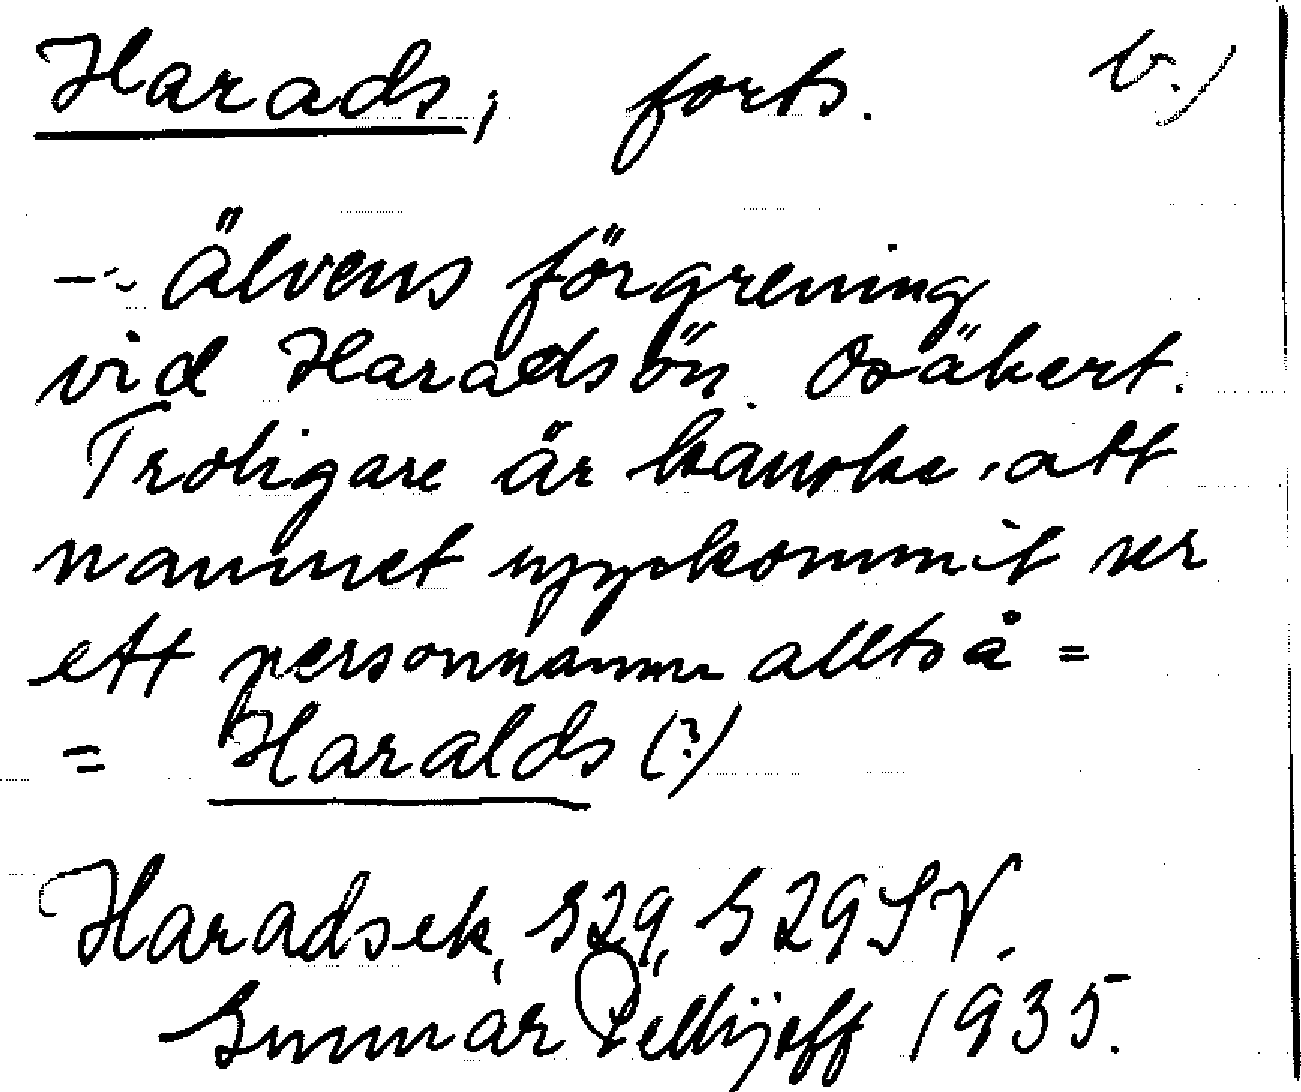 Harads, forts. b.)
- älvens förgrening
vid Haradsön. Osäkert.
Troligare är kanske att
namnet uppkommit ur
ett personnamn alltså =
= Haralds (?)
Haradsek, S29, S29SV.
Gunnar Pellijeff 1935.